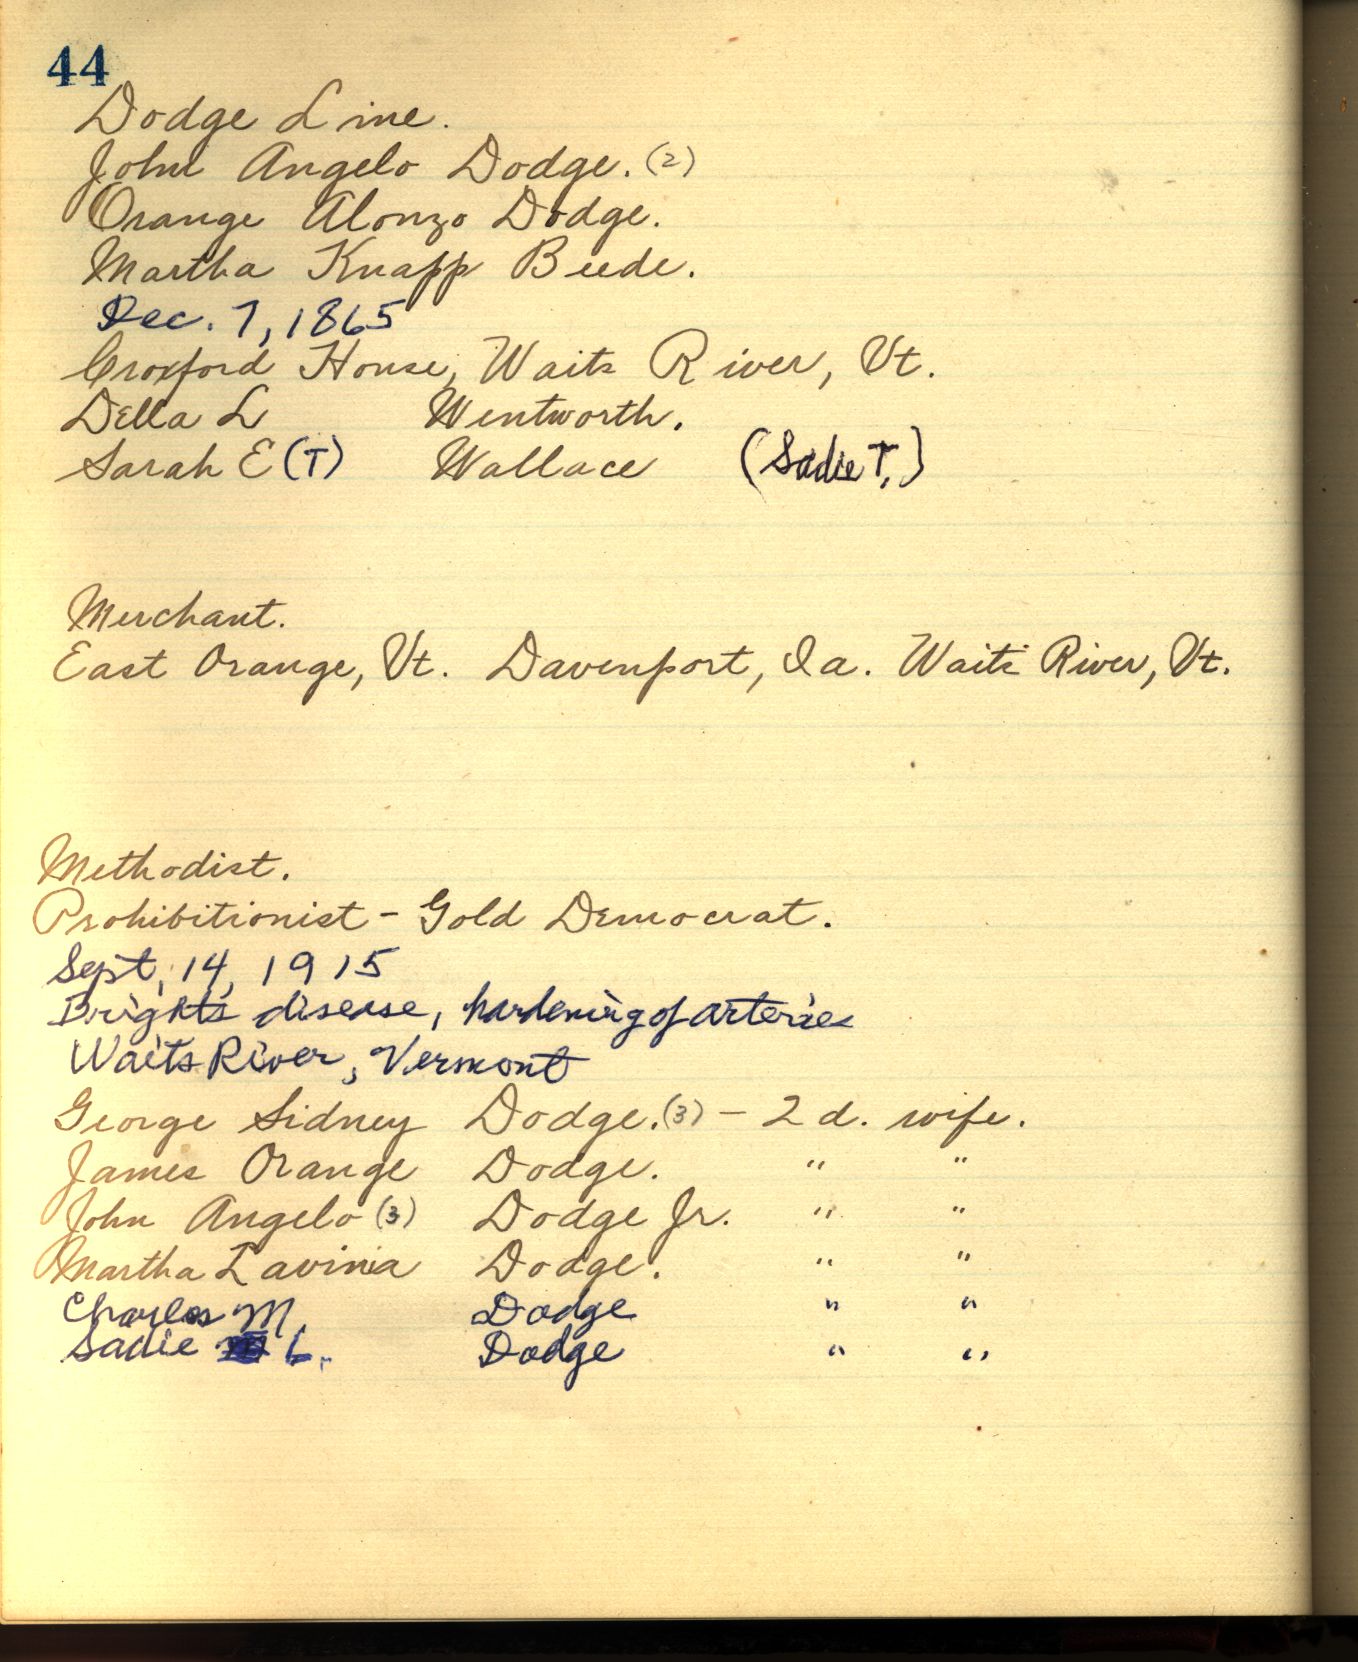 44
Dodge Line.
John Angelo Dodge. (2)
Orange Alonzo Dodge.
Martha Knapp Beede.
Dec. 7, 1865
Croxford House, Waits River, Vt.
Della L Wentworth.
Sarah E (T) Wallace (Sadie T.)
Merchant.
East Orange, Vt. Davenport, Ia. Waits River, Vt.
Methodist.
Prohibitionist - Gold Democrat.
Sept, 14, 1915
Bright's disease, hardening of arteries
Waits River, Vermont
George Sidney Dodge. (3) - 2d. wife.
James Orange Dodge. " "
John Angelo (3) Dodge Jr. " "
Martha Lavinia Dodge. " "
Charles M. Dodge " "
Sadie L. Dodge " "